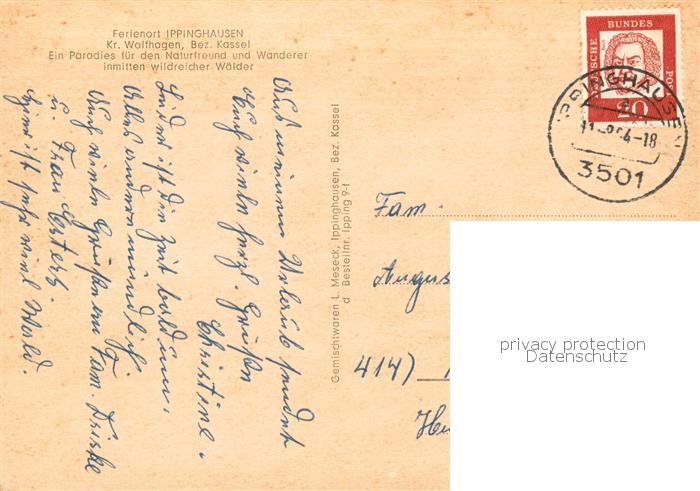 Ferienort IPPINGHAUSEN
Kr. Wolfhagen, Bez. Kassel
Ein Paradies für den Naturfreund und Wanderer
inmitten wildreicher Wälder
Aus meinem Urlaub sendet
Euch viele herzl. Grüße
Christine.
Leider ist die Zeit bald um.
Alles andere mündlich.
Auch viele Grüße an Fam.
u. Frau
Hier ist sehr viel Wald.
Gemischtwaren L. Meseck, Ippinghausen, Bez. Kassel
d Bestellnr. Ipping 9-f
DEUTSCHE BUNDESPOST
20
IPPINGHAUSEN
64-18
3501
Fam.
Augus
414)
privacy protection
Datenschutz